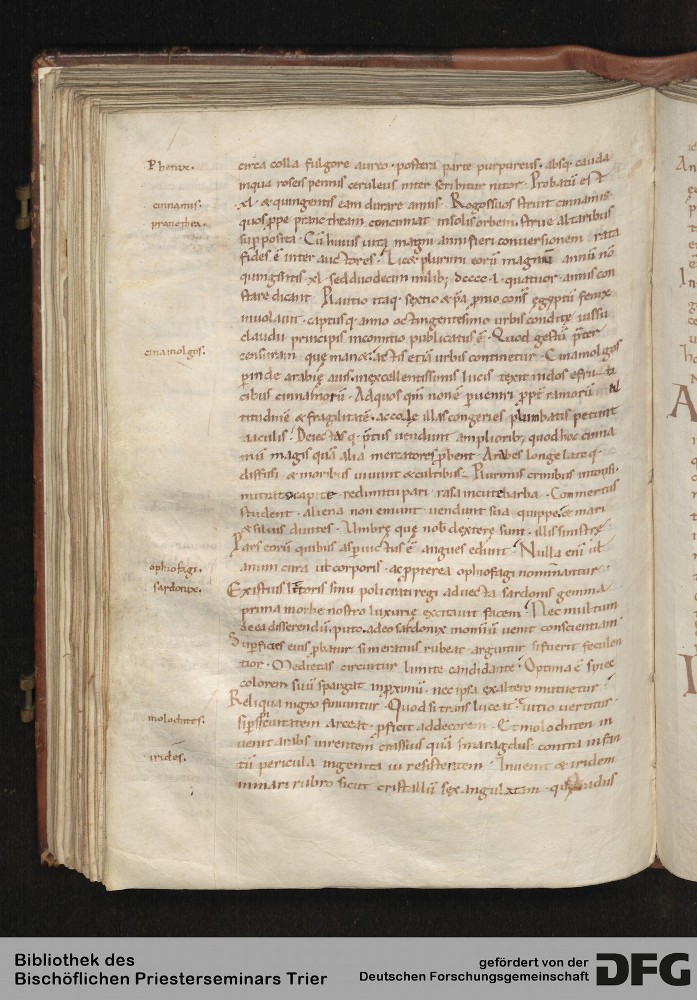 Phenix.
cinnamis.
pancthea.
cinamolgos.
ophiofagi.
sardonix.
molochites.
irides.
circa colla fulgore aureo · postera parte purpureus · absq· cauda
inqua roseis pennis ceruleus inter scribitur nitor · Probatũ est
.xl· & quingentis eam durare annis · Rogos suos struit cinnamis·
quos ppe panctheam concinnat insolis orbem strue altaribus
supposita · Cũ huius uita magni anni fieri conuersionem rata
fides ẽ inter auctores · Licet plurimi eorũ magnũ annũ nõ
quingentis ·xl· sed duodecim milib; dcccc·l· quatuor annis con
stare dicant · Plautio itaq· sextio & pa pnio cons egyptũ fenix
inuolauit · captusq· anno octingentesimo urbis condite iussu
claudii principis incomitio publicatus ẽ · Quod gestũ pter
censuram que manet actis etiã urbis continetur · Cinamolgos
perinde arabie auis · inexcellentissimis lucis texit nidos
cibus cinnamorũ · Adquos qm̃ non ẽ peruenri ppt ramorũ al
titudinẽ & fragilitatẽ · accole illas congeries plumbatis petunt
iaculis · Deiectasq· ptius uendunt amplioribus quod hoc cinna
mũ magis quã alia mercatores pbent · Arabes longe lateq·
diffusi & moribus uiuunt & cultibus · Plurimis crinibus intonsi·
mitrata capite redimitu pari rasa incute barba · Commertiis
student · aliena non emunt uendunt sua quippe & mari
& siluis diuites · Umbre que nob dextere sunt illis sinistre
Pars eorũ quibus asper uictus ẽ angues edunt · Nulla eni ut
animi cura ut corporis · ac ppterea ophiofagi nominantur ·
Existius litoris sinu policrati regi aduecta sardonix gemma
prima inorbe nostro luxurie excitauit facem · Nec multum
deea disserendũ puto · adeo sardonix inomniũ uenit conscientiam
Supficies eius pbatur si meratius rubeat arguitur si fuerit feculen
tior · Medietas circuitur limite candidante · Optima ẽ si nec
colorem suũ spargat inpximũ · nec ipsa exaltero mutuetur ·
Reliqua nigro finiuntur · Quod si trans luceat uitio uertitur·
si pspicuitatem arceat · pficit addecorem · Et molochiten in
uenit arabs uirentem crassius quã smaragdus · contra infan
tũ pericula ingenita ui resistentem · Inuenit & iridem
inmari rubro sicut cristallũ sexangulatam ·
Bibliothek des
Bischöflichen Priesterseminars Trier
gefördert von der
Deutschen Forschungsgemeinschaft
DFG